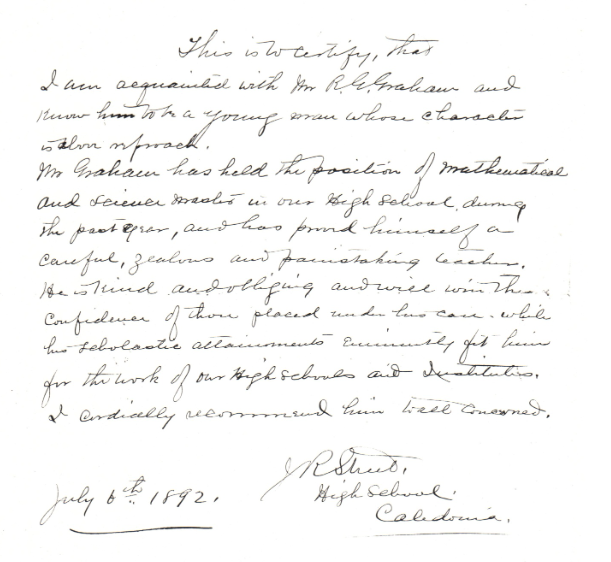 This is to certify, that
I am acquainted with Mr R. G. Graham and
know him to be a young man whose character
is above reproach.
Mr Graham has held the position of Mathematical
and Science Master in our High School, during
the past year, and has proved himself a
careful, zealous and painstaking teacher.
He is kind and obliging and will win the
confidence of those placed under his care. while
his scholastic attainments eminently fit him
for the work of our High Schools and Institutes.
I cordially recommend him to all concerned.
J R Street.
High School.
Caledonia.
July 6th. 1892.